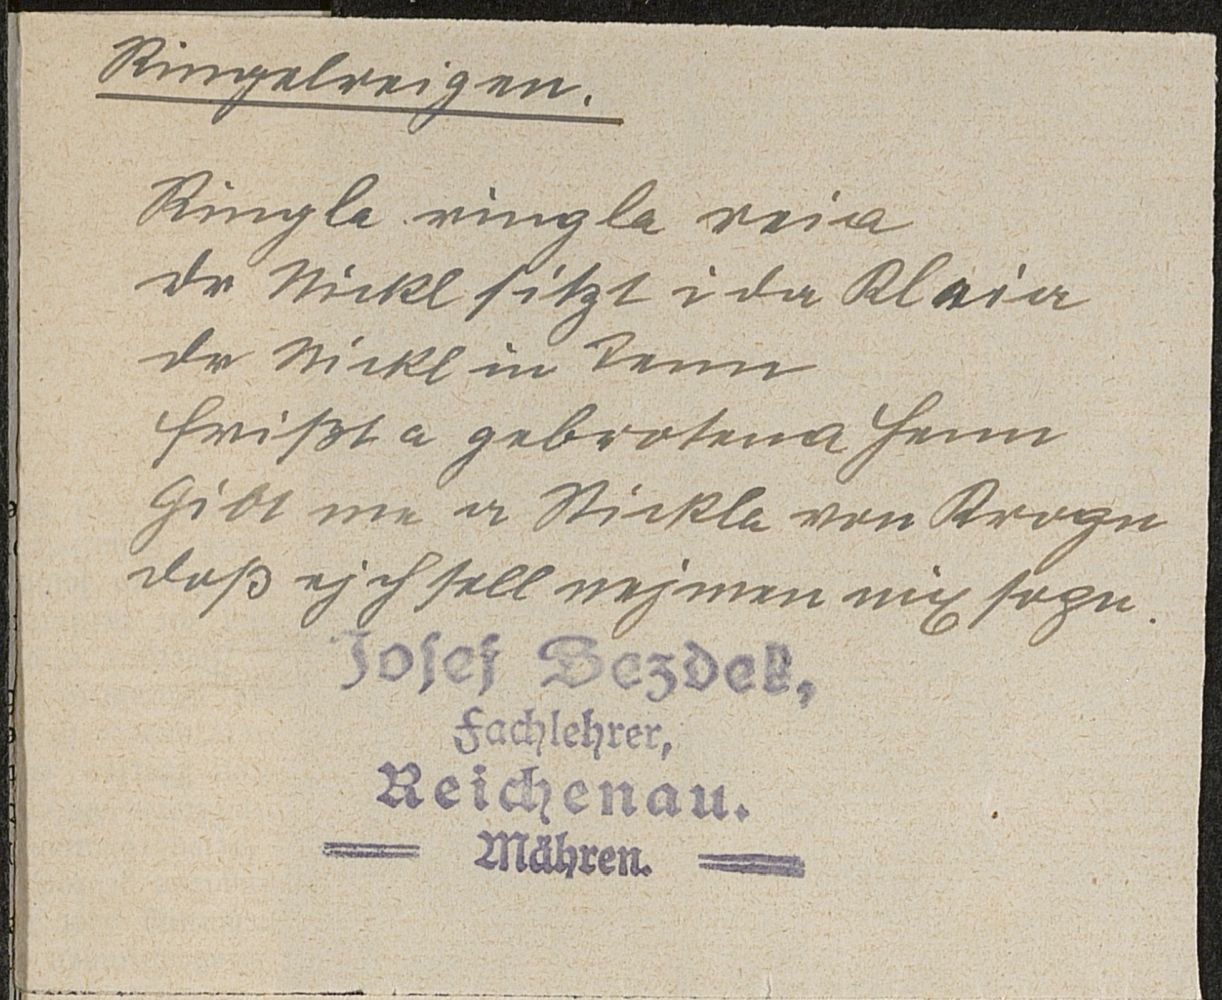 Ringelreigen.
Ringla ringla reia
dr Nickl sitzt i da Kleia
dr Nickl in Tenn
frißt a gebrotena Henn
Gibt me a Stickla von Krogn
doß ejch sell nejmen nix sogn.
Josef Bezdek,
Fachlehrer,
Reichenau.
Mähren.